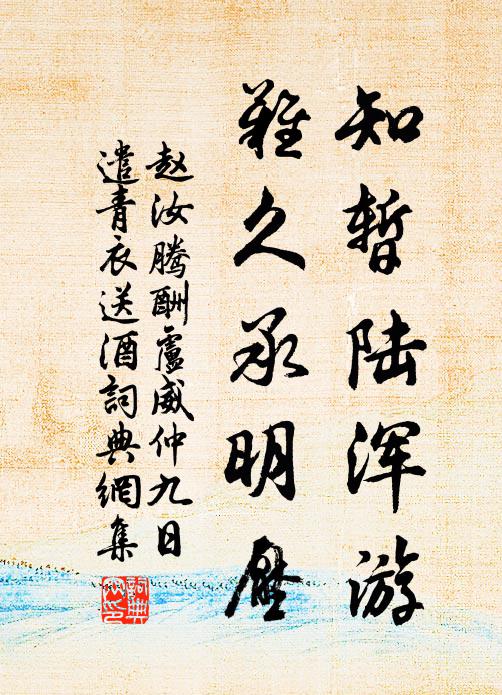 知暂陆浑游
难久承明压
赵汝腾酬卢威仲九日
遣青衣送酒词典网集